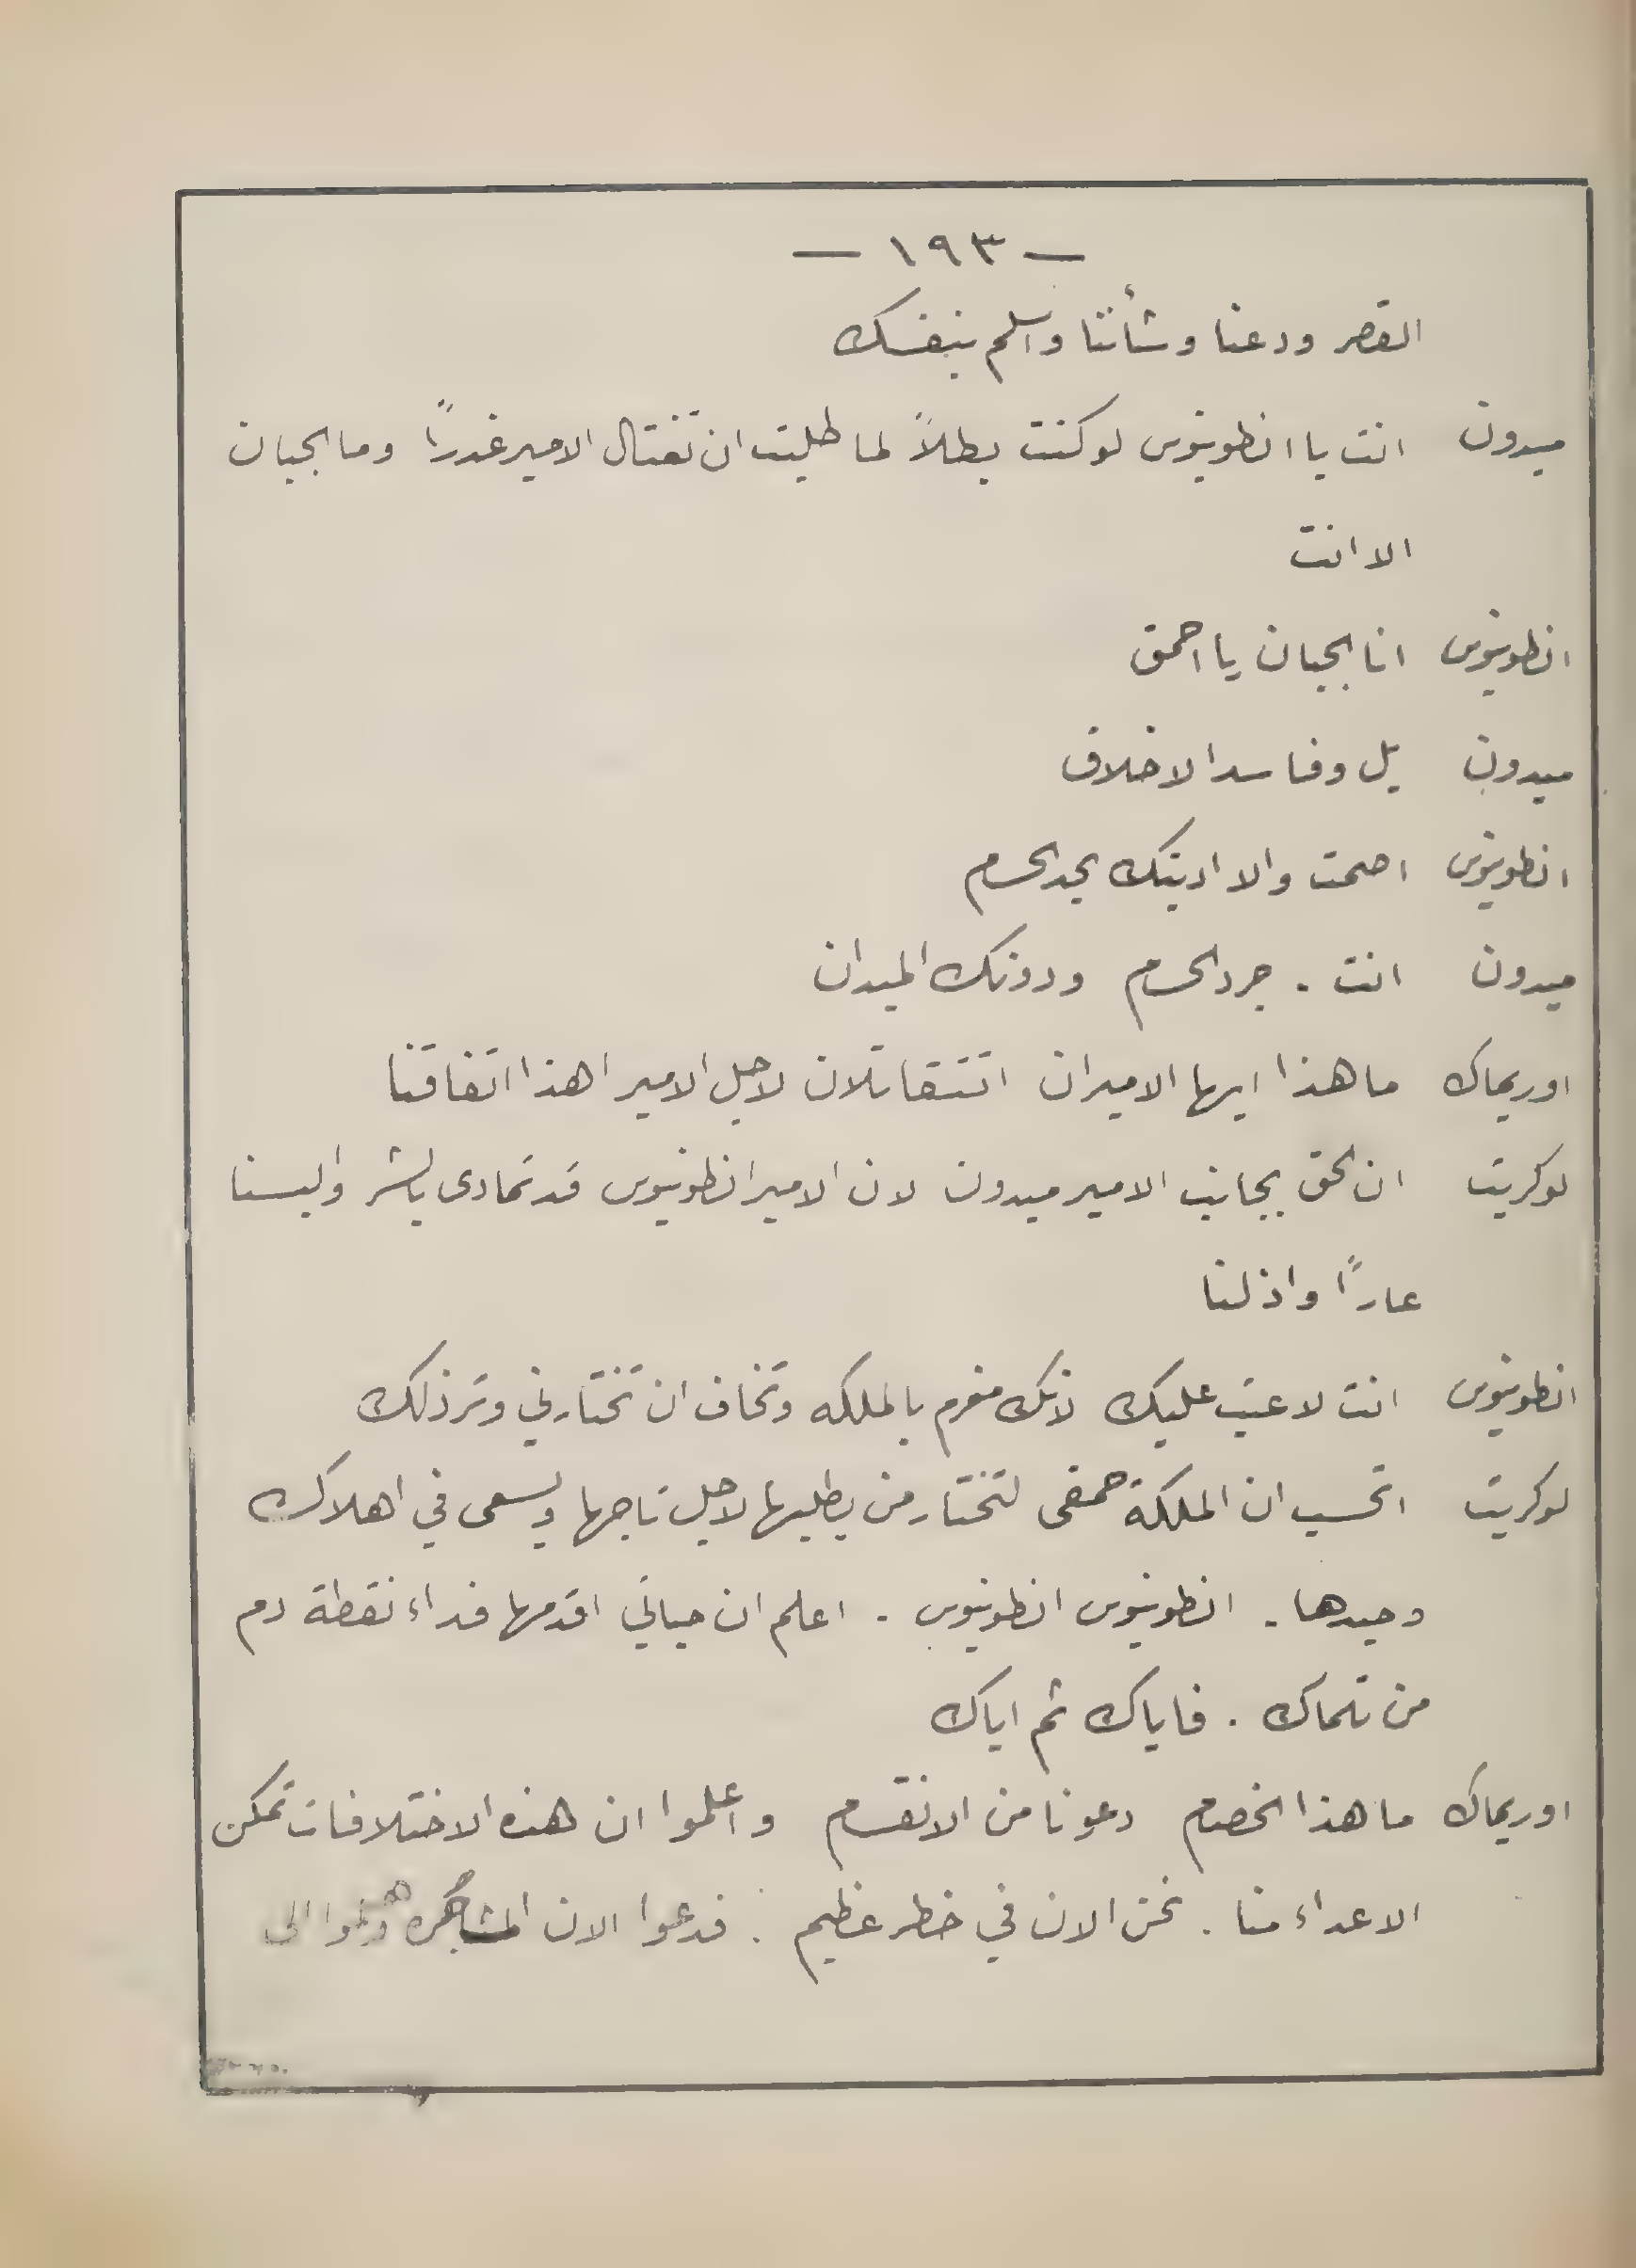 — ١٩٣ —
القصر ودعنا وشأننا واسلم بنفسك
ميدون انت يا انطونيوس لو كنت بطلاً لما طلبت ان تغتال الامير غدراً وما الجبان
الا انت
انطونيوس انا الجبان يا احمق
ميدون بل وفاسد الاخلاق
انطونيوس اصمت والا ادبتك بحد الحسام
ميدون انت . جرد الحسام ودونك الميدان
اوريماك ما هذا ايها الاميران اتتقاتلان لاجل الامير اهذا اتفاقنا
لوكريت ان الحق بجانب الامير ميدون لان الامير انطونيوس قد تمادى بالشر والبسنا
عاراً واذلنا
انطونيوس انت لا عتب عليك لانك مغرم بالملكه وتخاف ان تختارني وترذلك
لوكريت اتحسب ان الملكة حمقى لتختار من يطلبها لاجل تاجها ويسعى في اهلاك
وحيدها . انطونيوس انطونيوس . اعلم ان حياتي اقدمها فداء نقطة دم
من تلماك . فاياك ثم اياك
اوريماك ما هذا الخصام دعونا من الانقسام واعلموا ان هذه الاختلافات تمكن
الاعداء منا . نحن الان في خطر عظيم . فدعوا الان المشاجره وهلموا الى